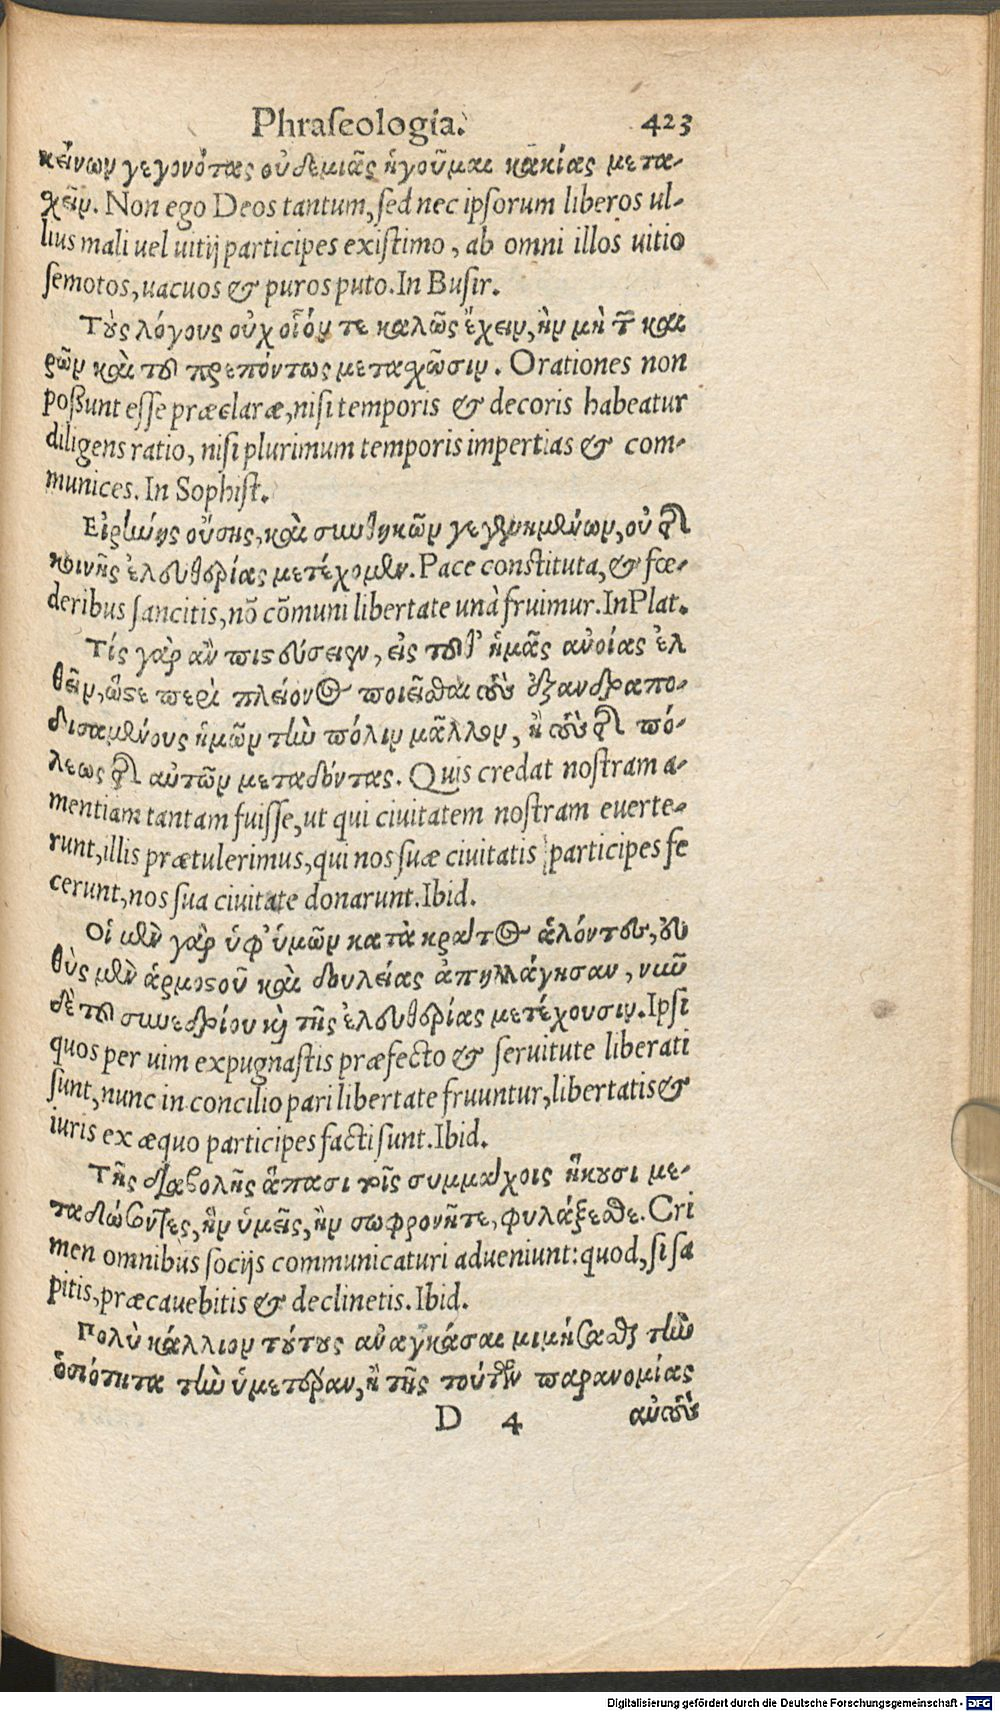 Phraſeologia. 423
κείνων γεγονότας οὐδεμιᾶς ἡγοῦμαι κακίας μετα-
χεῖν. Non ego Deos tantum, ſed nec ipſorum liberos ul-
lius mali uel uitij participes exiſtimo, ab omni illos uitio
ſemotos, uacuos & puros puto. In Buſir.
Τοὺς λόγους οὐχ οἷόν τε καλῶς ἔχειν, ἢν μὴ τῶν και
ρῶν καὶ τοῦ πρεπόντως μεταχῶσιν. Orationes non
poſſunt eſſe præclaræ, niſi temporis & decoris habeatur
diligens ratio, niſi plurimum temporis impertias & com-
munices. In Sophiſt.
Εἰρήνης οὔσης, καὶ συνθηκῶν γεγενημένων, οὐ τῆς
κοινῆς ἐλευθερίας μετέχομεν. Pace conſtituta, & fœ-
deribus ſancitis, nō cōmuni libertate unà fruimur. In Plat.
Τίς γὰρ ἂν πιστεύσειεν, εἰς τοῦθ' ἡμᾶς ἀνοίας ἐλ
θεῖν, ὥστε περὶ πλείονος ποιεῖσθαι τοὺς ἐξανδραπο-
δισαμένους ἡμῶν τὴν πόλιν μᾶλλον, ἢ τοὺς τῆς πό-
λεως τῆς αὐτῶν μεταδόντας. Quis credat noſtram a-
mentiam tantam fuiſſe, ut qui ciuitatem noſtram euerte-
runt, illis prætulerimus, qui nos ſuæ ciuitatis participes fe
cerunt, nos ſua ciuitate donarunt. Ibid.
Οἱ μὲν γὰρ ὑφ' ὑμῶν κατὰ κράτος ἁλόντες, εὐ
θὺς μὲν ἁρμοστοῦ καὶ δουλείας ἀπηλλάγησαν, νῦν
δὲ τοῦ συνεδρίου καὶ τῆς ἐλευθερίας μετέχουσιν. Ipſi
quos per uim expugnaſtis præfecto & ſeruitute liberati
ſunt, nunc in concilio pari libertate fruuntur, libertatis &
iuris ex æquo participes facti ſunt. Ibid.
Τῆς διαβολῆς ἅπασι τοῖς συμμάχοις ἥκουσι με-
ταδώσοντες, ἣν ὑμεῖς, ἢν σωφρονῆτε, φυλάξεσθε. Cri
men omnibus ſocijs communicaturi adueniunt: quod, ſi ſa
pitis, præcauebitis & declinetis. Ibid.
Πολὺ κάλλιον τούτους ἀναγκάσαι μιμήσασθαι τὴν
ὁσιότητα τὴν ὑμετέραν, ἢ τῆς τούτων παρανομίας
D 4 αὐτοὺς
Digitalisierung gefördert durch die Deutsche Forschungsgemeinschaft - DFG